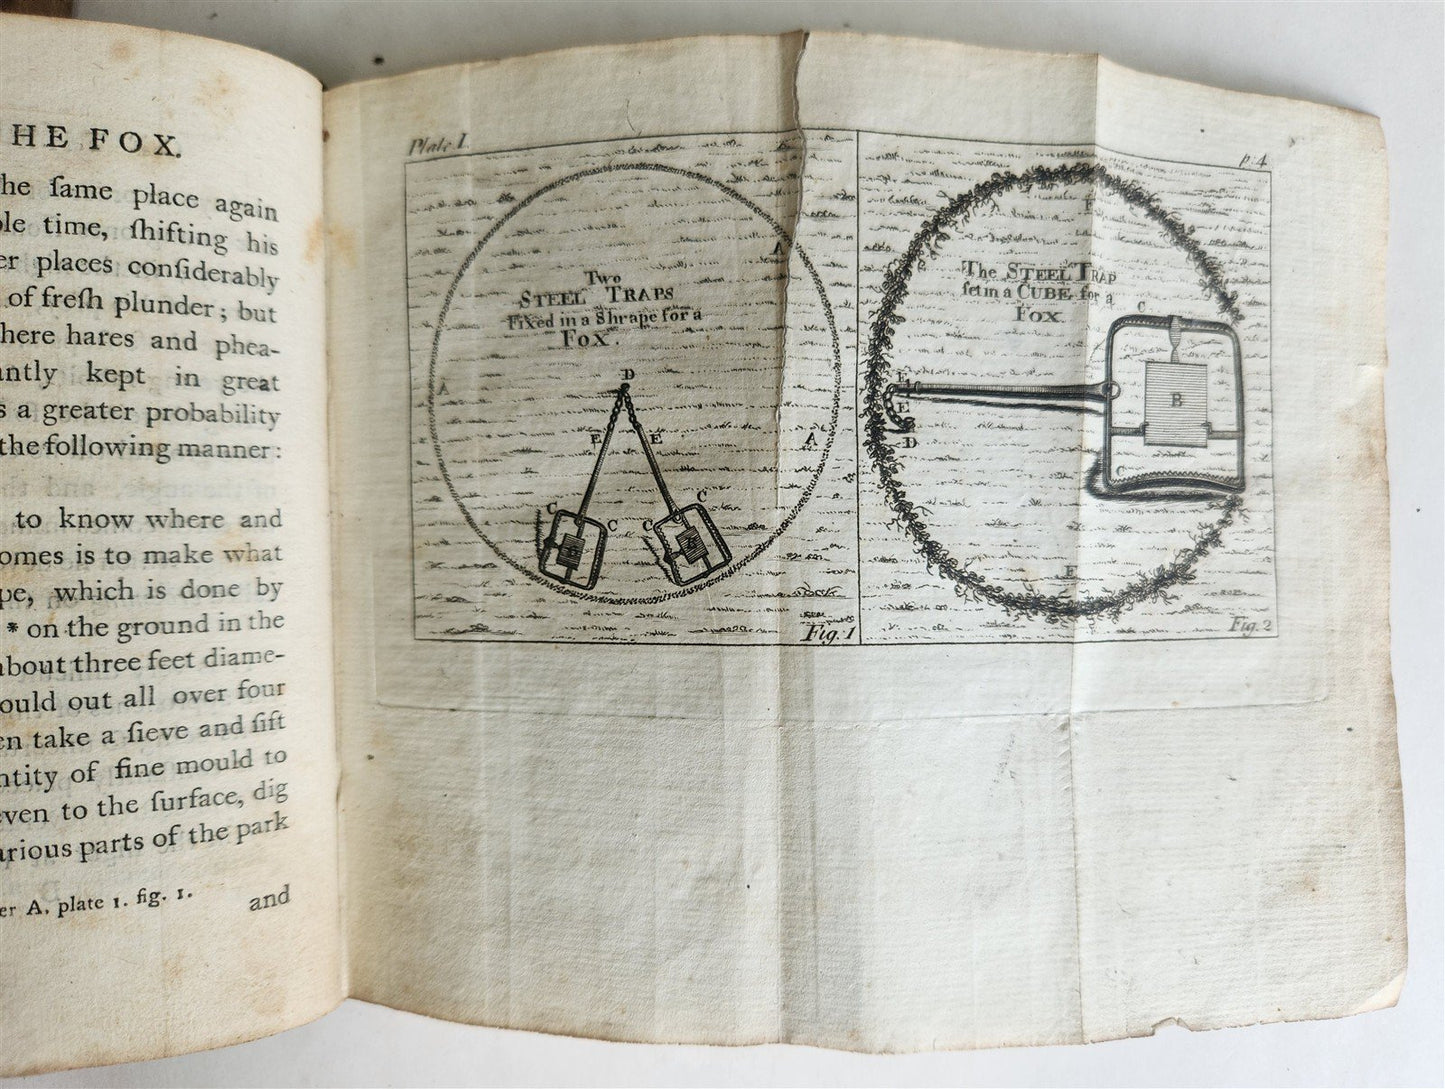 HE FOX.
he ſame place again
le time, ſhifting his
er places conſiderably
of freſh plunder; but
here hares and phea-
antly kept in great
s a greater probability
the following manner:
to know where and
omes is to make what
pe, which is done by
* on the ground in the
about three feet diame-
ould out all over four
en take a ſieve and ſift
ntity of fine mould to
even to the ſurface, dig
arious parts of the park
er A. plate 1. fig. 1.
and
Plate I.
p. 4
Two
STEEL TRAPS
Fixed in a Shrape for a
FOX.
A
A
A
D
E
E
C
C
C
C
Fig. 1
The STEEL TRAP
ſet in a CUBE for a
FOX.
C
B
E
D
C
F
Fig. 2